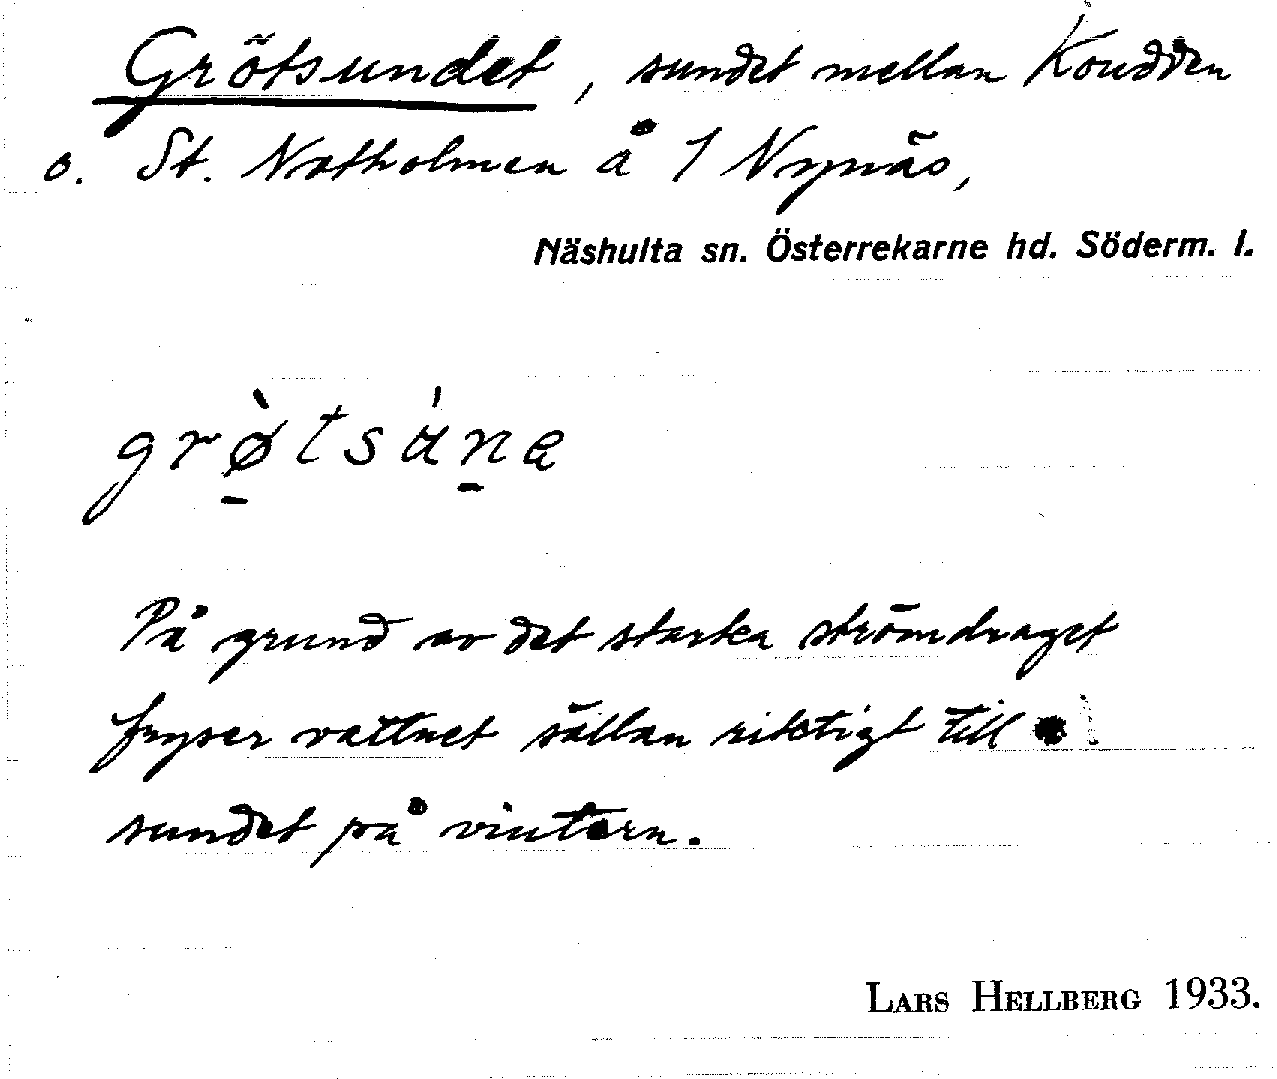 Grötsundet, sundet mellan Koudden
o. St. Notholmen å 1 Nynäs,
Näshulta sn. Österrekarne hd. Söderm. l.
På grund av det starka strömdraget
fryser vattnet sällan riktigt till
sundet på vintern.
LARS HELLBERG 1933.